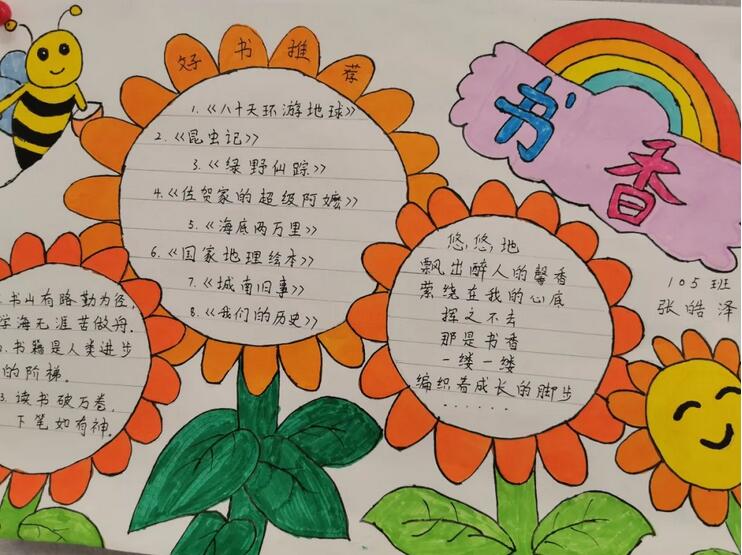 书香
105班
张皓泽
好书推荐
1.《八十天环游地球》
2.《昆虫记》
3.《绿野仙踪》
4.《佐贺家的超级阿嬷》
5.《海底两万里》
6.《国家地理绘本》
7.《城南旧事》
8.《我们的历史》
悠,悠,地
飘出醉人的馨香
萦绕在我的心底
挥之不去
那是书香
一缕一缕
编织着成长的脚步
......
书山有路勤为径,
学海无涯苦做舟.
2.书籍是人类进步
的阶梯.
3.读书破万卷,
下笔如有神.